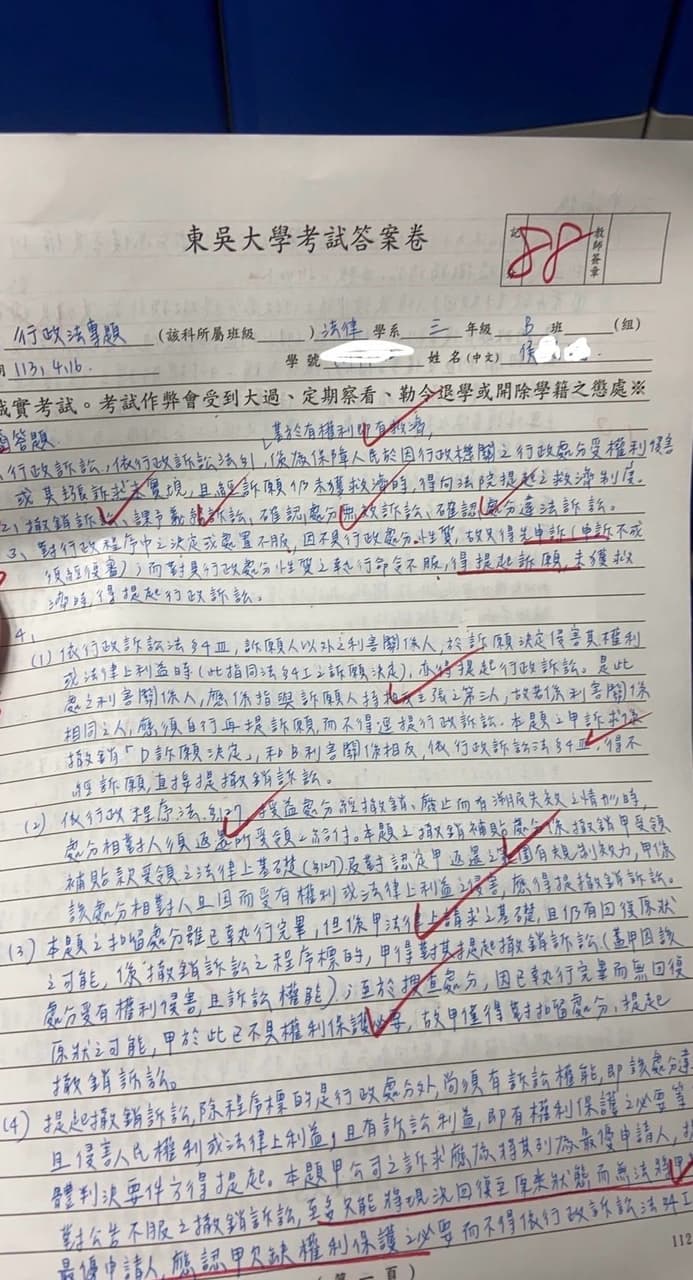 東吳大學考試答案卷
記 88 教師簽章
行政法專題 (該科所屬班級 ) 法律 學系 三 年級 B 班 (組)
113.4.16. 學號 姓名(中文) 侯
誠實考試。考試作弊會受到大過、定期察看、勒令退學或開除學籍之懲處※
答題
基於有權利即有救濟,
行政訴訟,依行政訴訟法§1,係為保障人民於因行政機關之行政處分受權利侵害
或其請訴求未實現,且經訴願仍未獲救濟時,得向法院提起之救濟制度。
2、撤銷訴訟、課予義務訴訟、確認處分無效訴訟、確認處分違法訴訟。
3、對行政程序中之決定或處置不服,因不具行政處分性質,故只得先申訴(申訴不成
後經復審);而對具行政處分性質之執行命令不服,得提起訴願,未獲救
濟時,得提起行政訴訟。
4、
(1) 依行政訴訟法§4Ⅲ,訴願人以外之利害關係人,於訴願決定侵害其權利
或法律上利益時(此指同法§4Ⅰ之訴願決定),亦得提起行政訴訟。是此
處之利害關係人,應係指與訴願人持相反主張之第三人,故若係利害關係
相同之人,應須自行再提訴願,而不得逕提行政訴訟。本題之甲訴求係
撤銷「D訴願決定」,和B利害關係相反,依行政訴訟法§4Ⅲ,得不
經訴願,直接提撤銷訴訟。
(2) 依行政程序法§127,授益處分經撤銷、廢止而有溯及失效之情形時,
處分相對人須返還所受領之給付。本題之撤銷補貼處分係撤銷甲受領
補貼款受領之法律上基礎(§127)及對認定甲返還之範圍有規制效力,甲係
該處分相對人且因而受有權利或法律上利益之侵害,應得提撤銷訴訟。
(3) 本題之扣留處分雖已執行完畢,但係甲法律上請求之基礎,且仍有回復原狀
之可能,係撤銷訴訟之程序標的,甲得對其提起撤銷訴訟(蓋甲因該
處分受有權利侵害,且訴訟權能);至於搜查處分,因已執行完畢而無回復
原狀之可能,甲於此已不具權利保護必要,故甲僅得對扣留處分,提起
撤銷訴訟。
(4) 提起撤銷訴訟,除程序標的是行政處分外,尚須有訴訟權能,即該處分違
且侵害人民權利或法律上利益,且有訴訟利益,即有權利保護之必要等
體判決要件方得提起。本題甲公司之訴求應為將其列為最優申請人,
對公告不服之撤銷訴訟,至多只能將現況回復至原來狀態而無法將甲
最優申請人,應認甲欠缺權利保護之必要而不得依行政訴訟法§4Ⅰ
112
(第一頁)